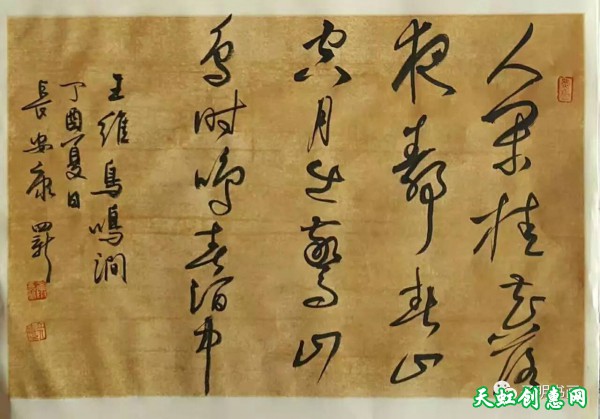 人闲桂花落
夜靜春山
空月出驚山
鸟时鸣春涧中
王維鳥鳴澗
丁酉夏日
長安康
天虹创惠网